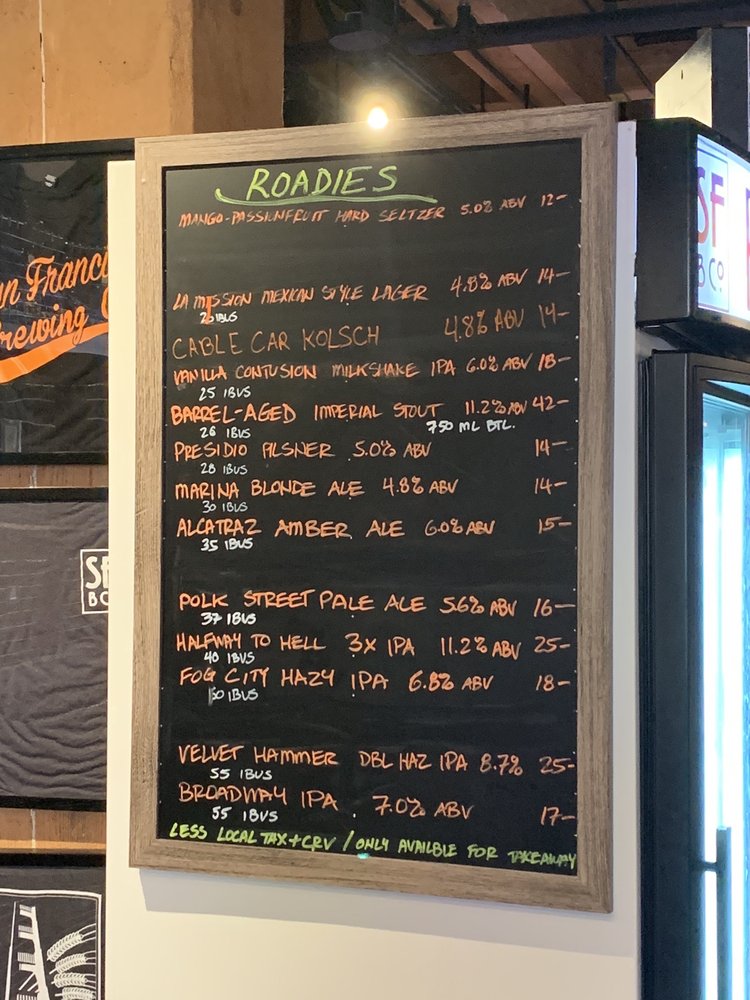 ROADIES
MANGO-PASSIONFRUIT HARD SELTZER 5.0% ABV 12-
LA MISSION MEXICAN STYLE LAGER 4.8% ABV 14-
IBUS
CABLE CAR KOLSCH 4.8% ABV 14-
VANILLA CONTUSION MILKSHAKE IPA 6.0% ABV 18-
25 IBUS
BARREL-AGED IMPERIAL STOUT 11.2% ABV 42-
26 IBUS 750 ML BTL.
PRESIDIO PILSNER 5.0% ABV 14-
28 IBUS
MARINA BLONDE ALE 4.8% ABV 14-
30 IBUS
ALCATRAZ AMBER ALE 6.0% ABV 15-
35 IBUS
POLK STREET PALE ALE 5.6% ABV 16-
37 IBUS
HALFWAY TO HELL 3X IPA 11.2% ABV 25-
40 IBUS
FOG CITY HAZY IPA 6.8% ABV 18-
50 IBUS
VELVET HAMMER DBL HAZ IPA 8.7% 25-
55 IBUS
BROADWAY IPA 7.0% ABV 17-
55 IBUS
LESS LOCAL TAX+CRV / ONLY AVAILBLE FOR TAKEAWAY
an Franci
rewing
SF
BC
SF
B CO